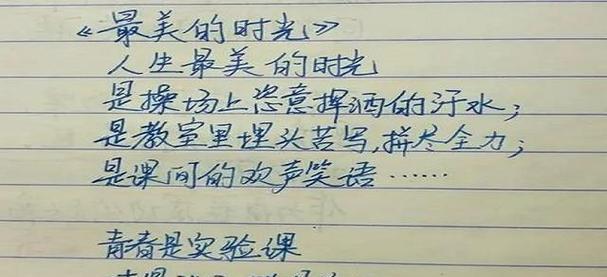 《最美的时光》
人生最美的时光
是操场上恣意挥洒的汗水；
是教室里埋头苦写,拼尽全力；
是课间的欢声笑语……
青春是实验课